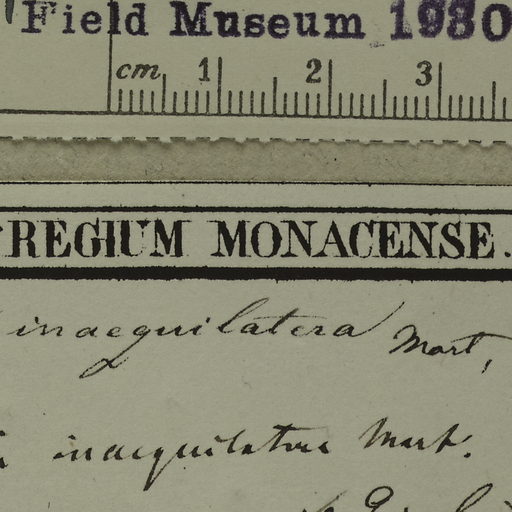 Field Museum 1980
cm 1 2 3
REGIUM MONACENSE.
inaequilatera Mart,
inaequilatera Mart.